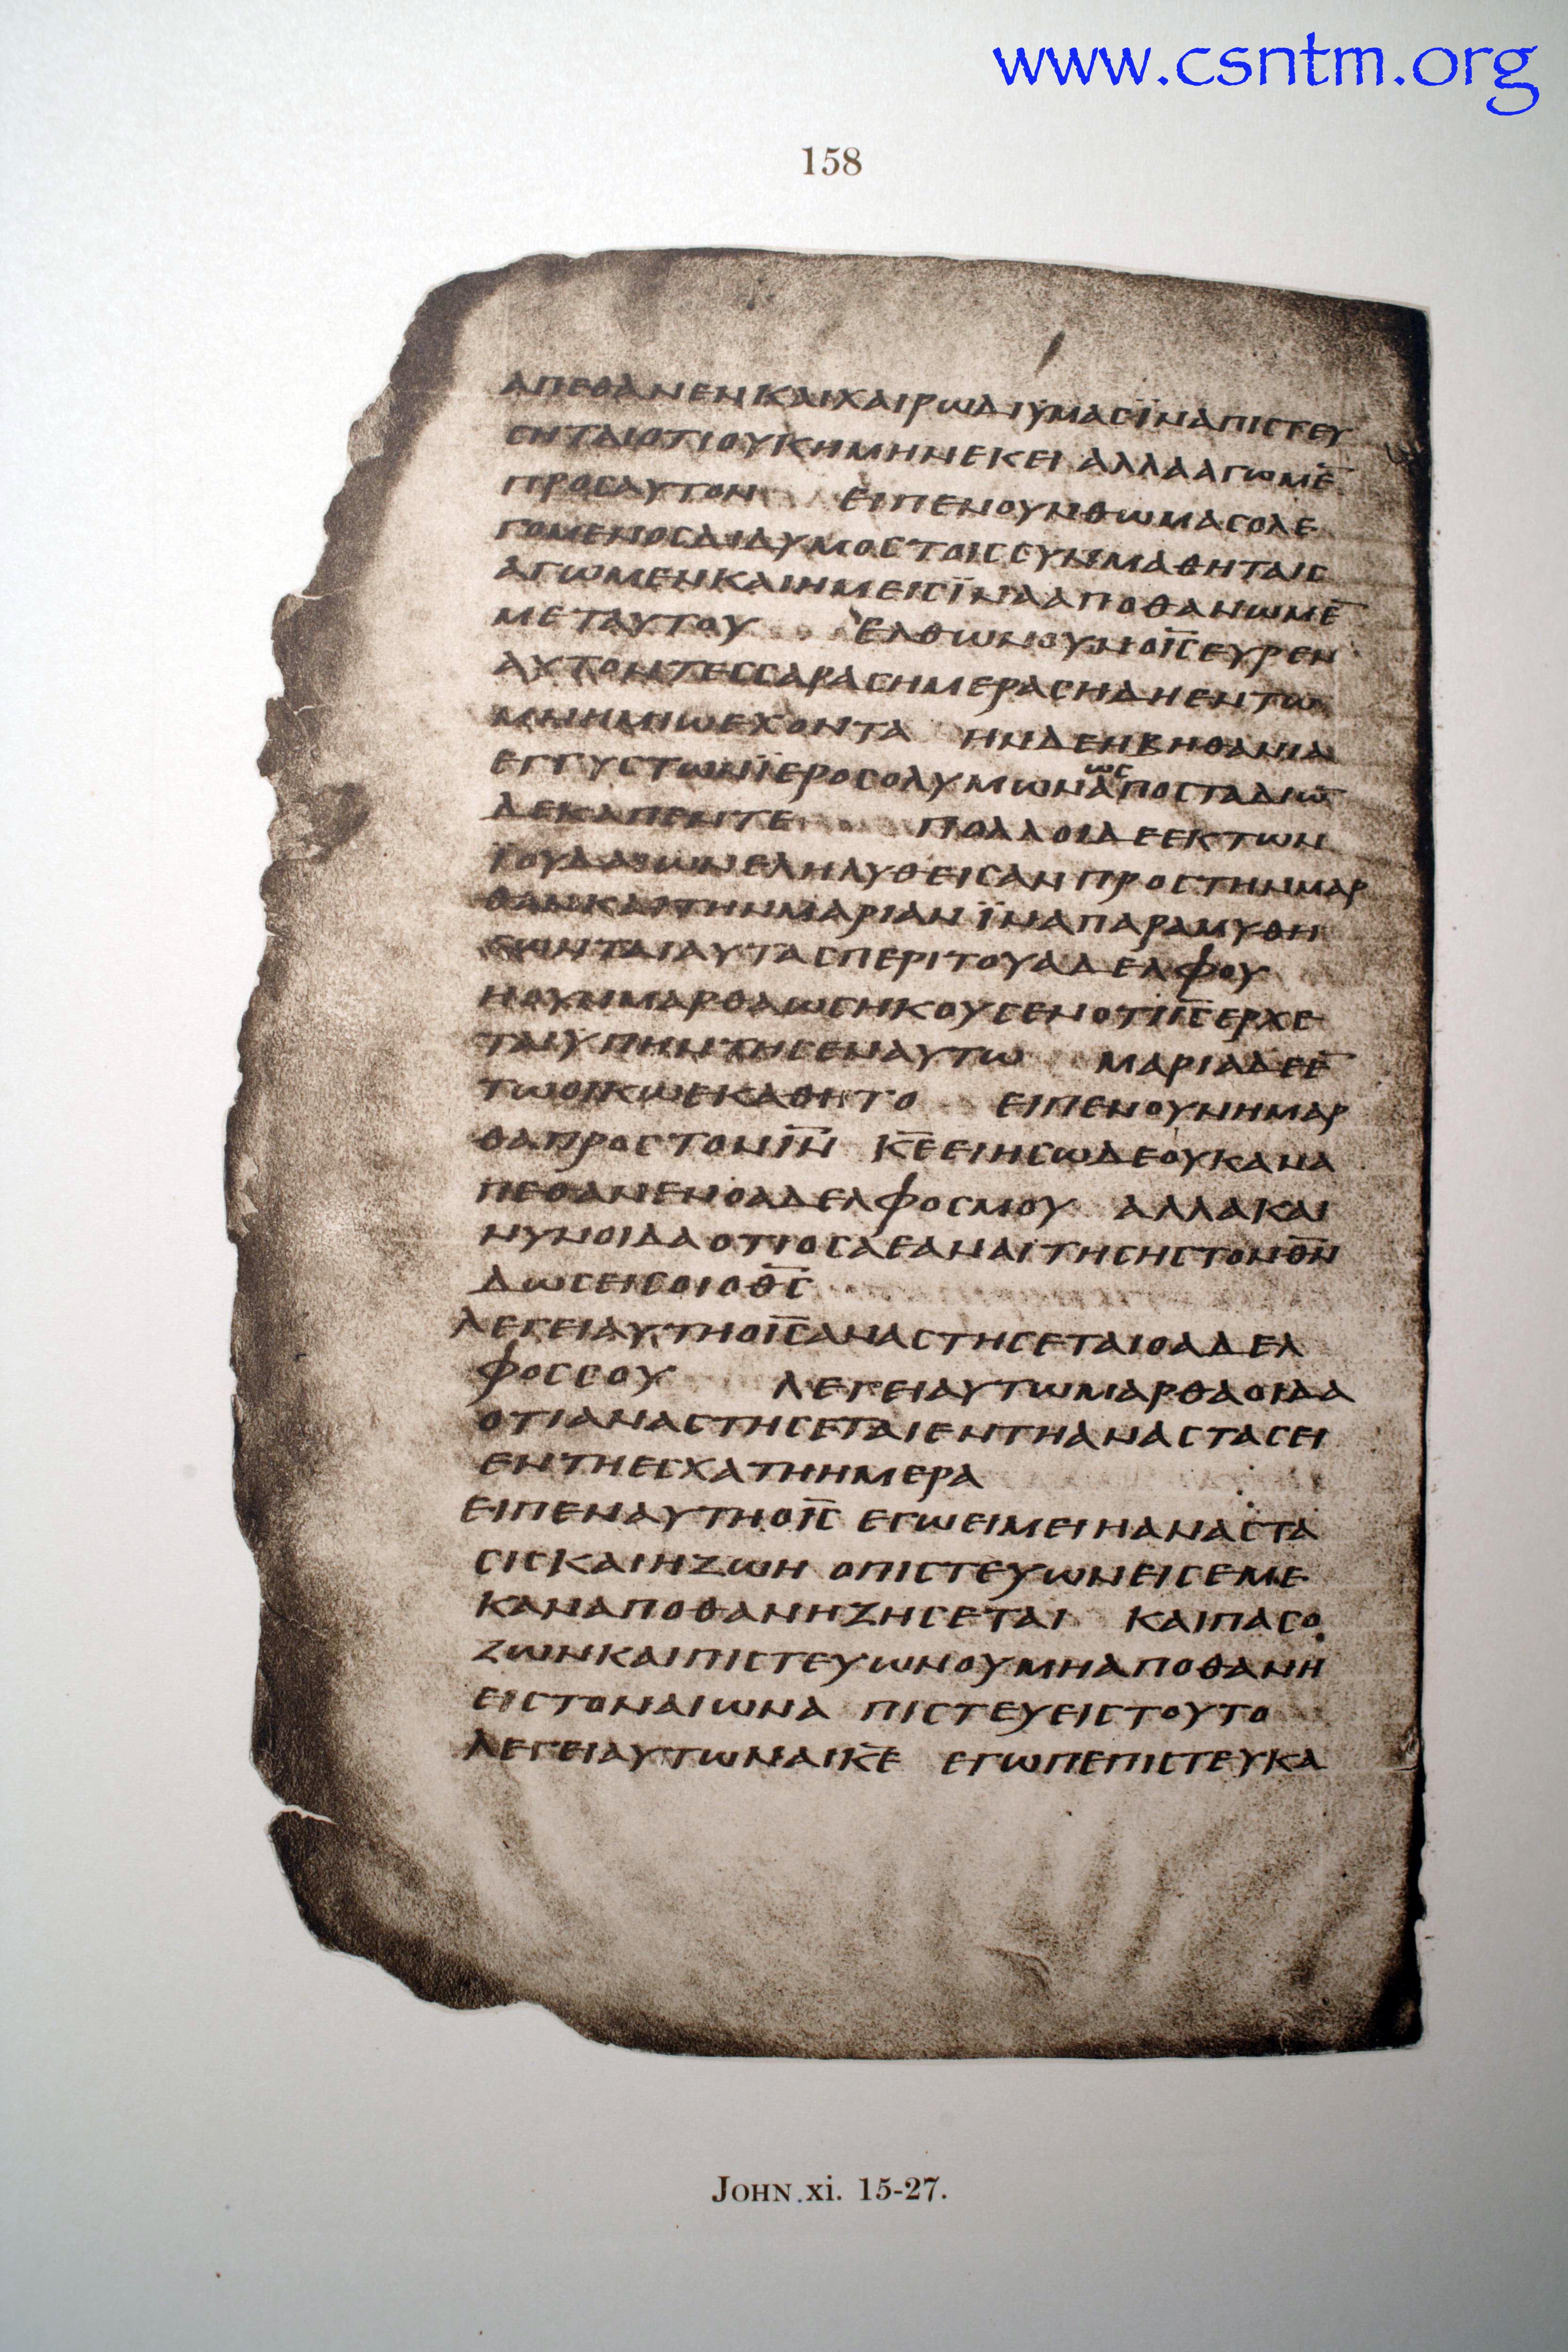 www.csntm.org
158
ΑΠΕΘΑΝΕΝΚΑΙΧΑΙΡΩΔΙΫΜΑСΪΝΑΠΙСΤΕΥ
СΗΤΑΙΟΤΙΟΥΚΗΜΗΝΕΚΕΙ ΑΛΛΑΑΓΩΜΕ̅
ΠΡΟСΑΥΤΟΝ ΕΙΠΕΝΟΥΝΘΩΜΑСΟΛΕ
ΓΟΜΕΝΟСΔΙΔΥΜΟСΤΟΙССΥΝΜΑΘΗΤΑΙС
ΑΓΩΜΕΝΚΑΙΗΜΕΙСΪΝΑΑΠΟΘΑΝΩΜΕ̅
ΜΕΤΑΥΤΟΥ ΕΛΘΩΝΟΥΝΟΙ̅С̅ΕΥΡΕΝ
ΑΥΤΟΝΤΕССΑΡΑСΗΜΕΡΑСΗΔΗΕΝΤΩ
ΜΝΗΜΙΩΕΧΟΝΤΑ ΗΝΔΕΗΒΗΘΑΝΙΑ
ΕΓΓΥСΤΩΝΪΕΡΟСΟΛΥΜΩΝωсΑΠΟСΤΑΔΙΩ̅
ΔΕΚΑΠΕΝΤΕ ΠΟΛΛΟΙΔΕΕΚΤΩΝ
ΪΟΥΔΑΙΩΝΕΛΗΛΥΘΕΙСΑΝΠΡΟСΤΗΝΜΑΡ
ΘΑΝΚΑΙΤΗΝΜΑΡΙΑΝΪΝΑΠΑΡΑΜΥΘΗ
СΩΝΤΑΙΑΥΤΑСΠΕΡΙΤΟΥΑΔΕΛΦΟΥ
ΗΟΥΝΜΑΡΘΑΩСΗΚΟΥСΕΝΟΤΙΙ̅С̅ΕΡΧΕ
ΤΑΙΫΠΗΝΤΗСΕΝΑΥΤΩ ΜΑΡΙΑΔΕΕ̅
ΤΩΟΙΚΩΕΚΑΘΗΤΟ ΕΙΠΕΝΟΥΝΗΜΑΡ
ΘΑΠΡΟСΤΟΝΙ̅Ν̅ Κ̅Ε̅ΕΙΗСΩΔΕΟΥΚΑΝΑ
ΠΕΘΑΝΕΝΟΑΔΕΛΦΟСΜΟΥ ΑΛΛΑΚΑΙ
ΝΥΝΟΙΔΑΟΤΙΟСΑΕΑΝΑΙΤΗСΗСΤΟΝΘ̅Ν̅
ΔΩСΕΙСΟΙΟΘ̅С̅
ΛΕΓΕΙΑΥΤΗΟΙ̅С̅ΑΝΑСΤΗСΕΤΑΙΟΑΔΕΛ
ΦΟССΟΥ ΛΕΓΕΙΑΥΤΩΜΑΡΘΑΟΙΔΑ
ΟΤΙΑΝΑСΤΗСΕΤΑΙΕΝΤΗΑΝΑСΤΑСΕΙ
ΕΝΤΗΕСΧΑΤΗΗΜΕΡΑ
ΕΙΠΕΝΑΥΤΗΟΙ̅С̅ ΕΓΩΕΙΜΕΙΗΑΝΑСΤΑ
СΙСΚΑΙΗΖΩΗ ΟΠΙСΤΕΥΩΝΕΙСΕΜΕ
ΚΑΝΑΠΟΘΑΝΗΖΗСΕΤΑΙ ΚΑΙΠΑСΟ
ΖΩΝΚΑΙΠΙСΤΕΥΩΝΟΥΜΗΑΠΟΘΑΝΗ
ΕΙСΤΟΝΑΙΩΝΑ ΠΙСΤΕΥΕΙСΤΟΥΤΟ
ΛΕΓΕΙΑΥΤΩΝΑΙΚ̅Ε̅ ΕΓΩΠΕΠΙСΤΕΥΚΑ
JOHN xi. 15-27.